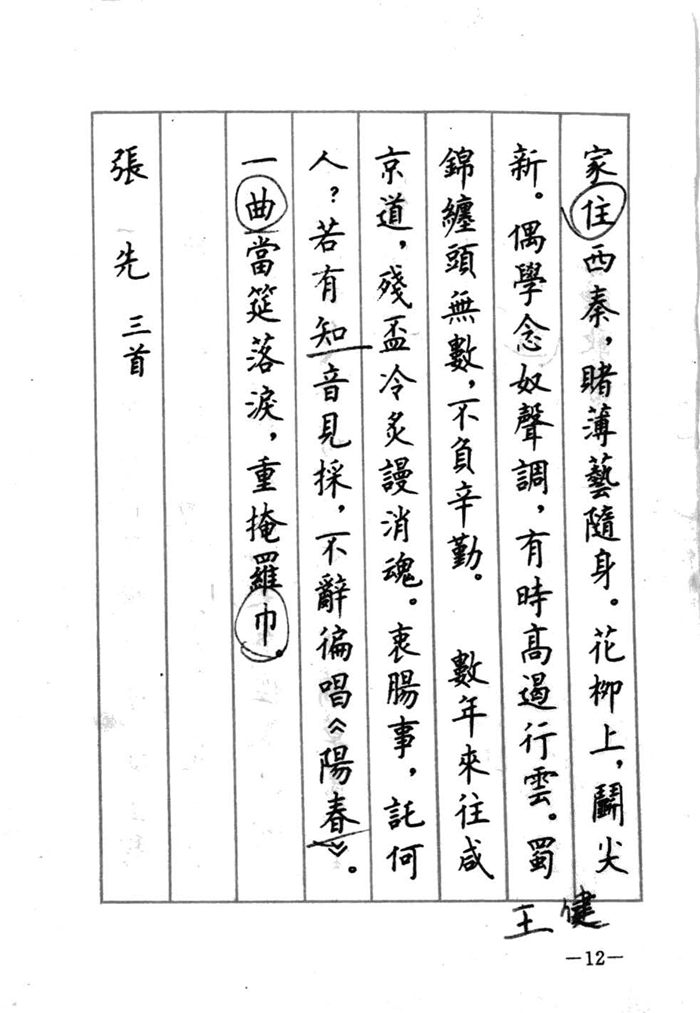 家住西秦，賭薄藝隨身。花柳上，鬭尖
新。偶學念奴聲調，有時高遏行雲。蜀
錦纏頭無數，不負辛勤。　數年來往咸
京道，殘盃冷炙謾消魂。衷腸事，託何
人？若有知音見採，不辭徧唱《陽春》。
一曲當筵落淚，重掩羅巾。
張先三首
王健
—12—